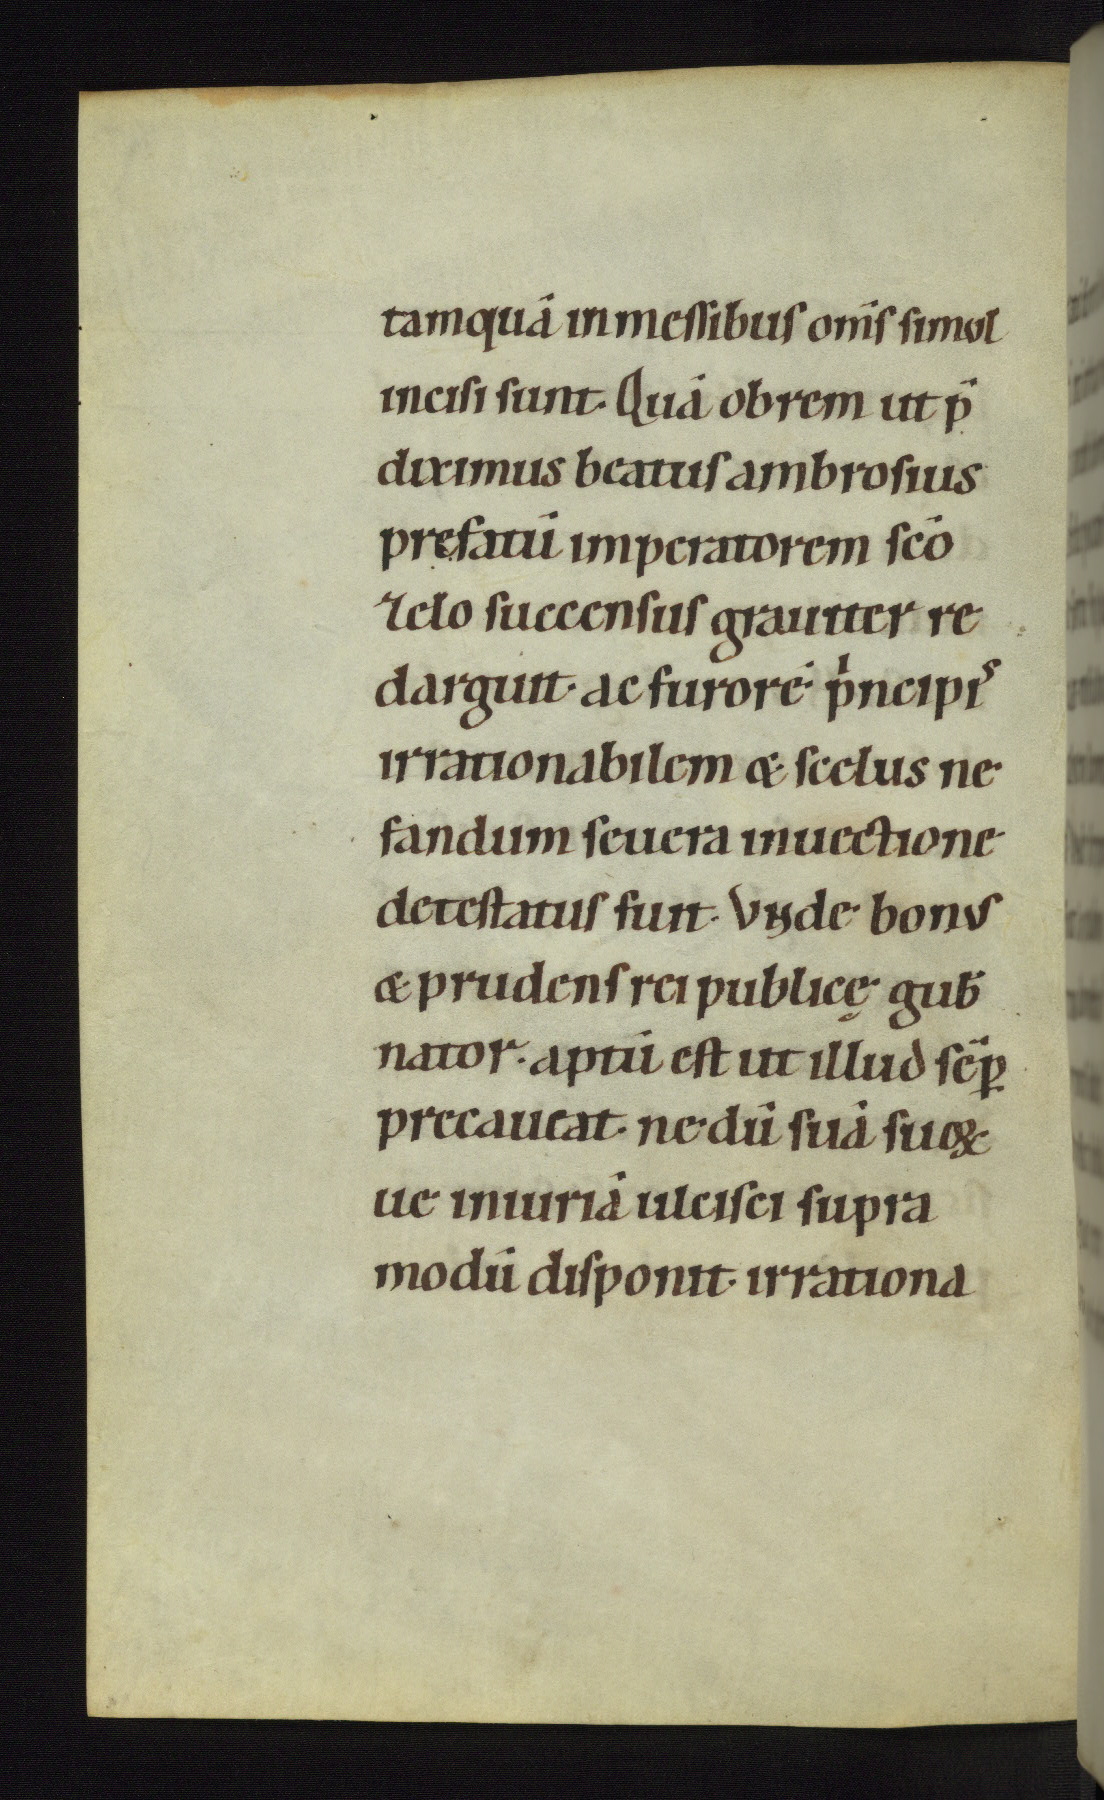 tamquā in messibus om̄s simul
incisi sunt. Quā ob rem ut p̄
diximus beatus ambrosius
prefatū imperatorem sc̄o
zelo succensus grauiter re
darguit. ac furorē pͥncipis
irrationabilem & scelus ne
fandum seuera inuectione
detestatus fuit. Vnde bonus
& prudens rei publicę gub̄
nator. aptū est ut illud sēꝑ
precaueat. ne dū suā suoꝝ
ue iniuriā ulcisci supra
modū disponit. irrationa